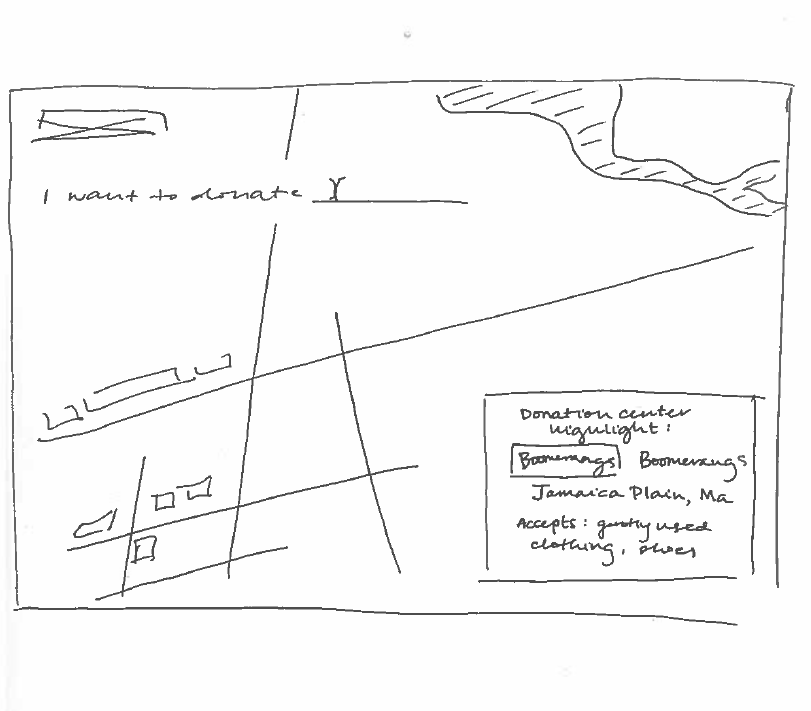 I want to donate
Donation center
highlight:
Boomerangs Boomerangs
Jamaica Plain, Ma
Accepts: gently used
clothing, shoes